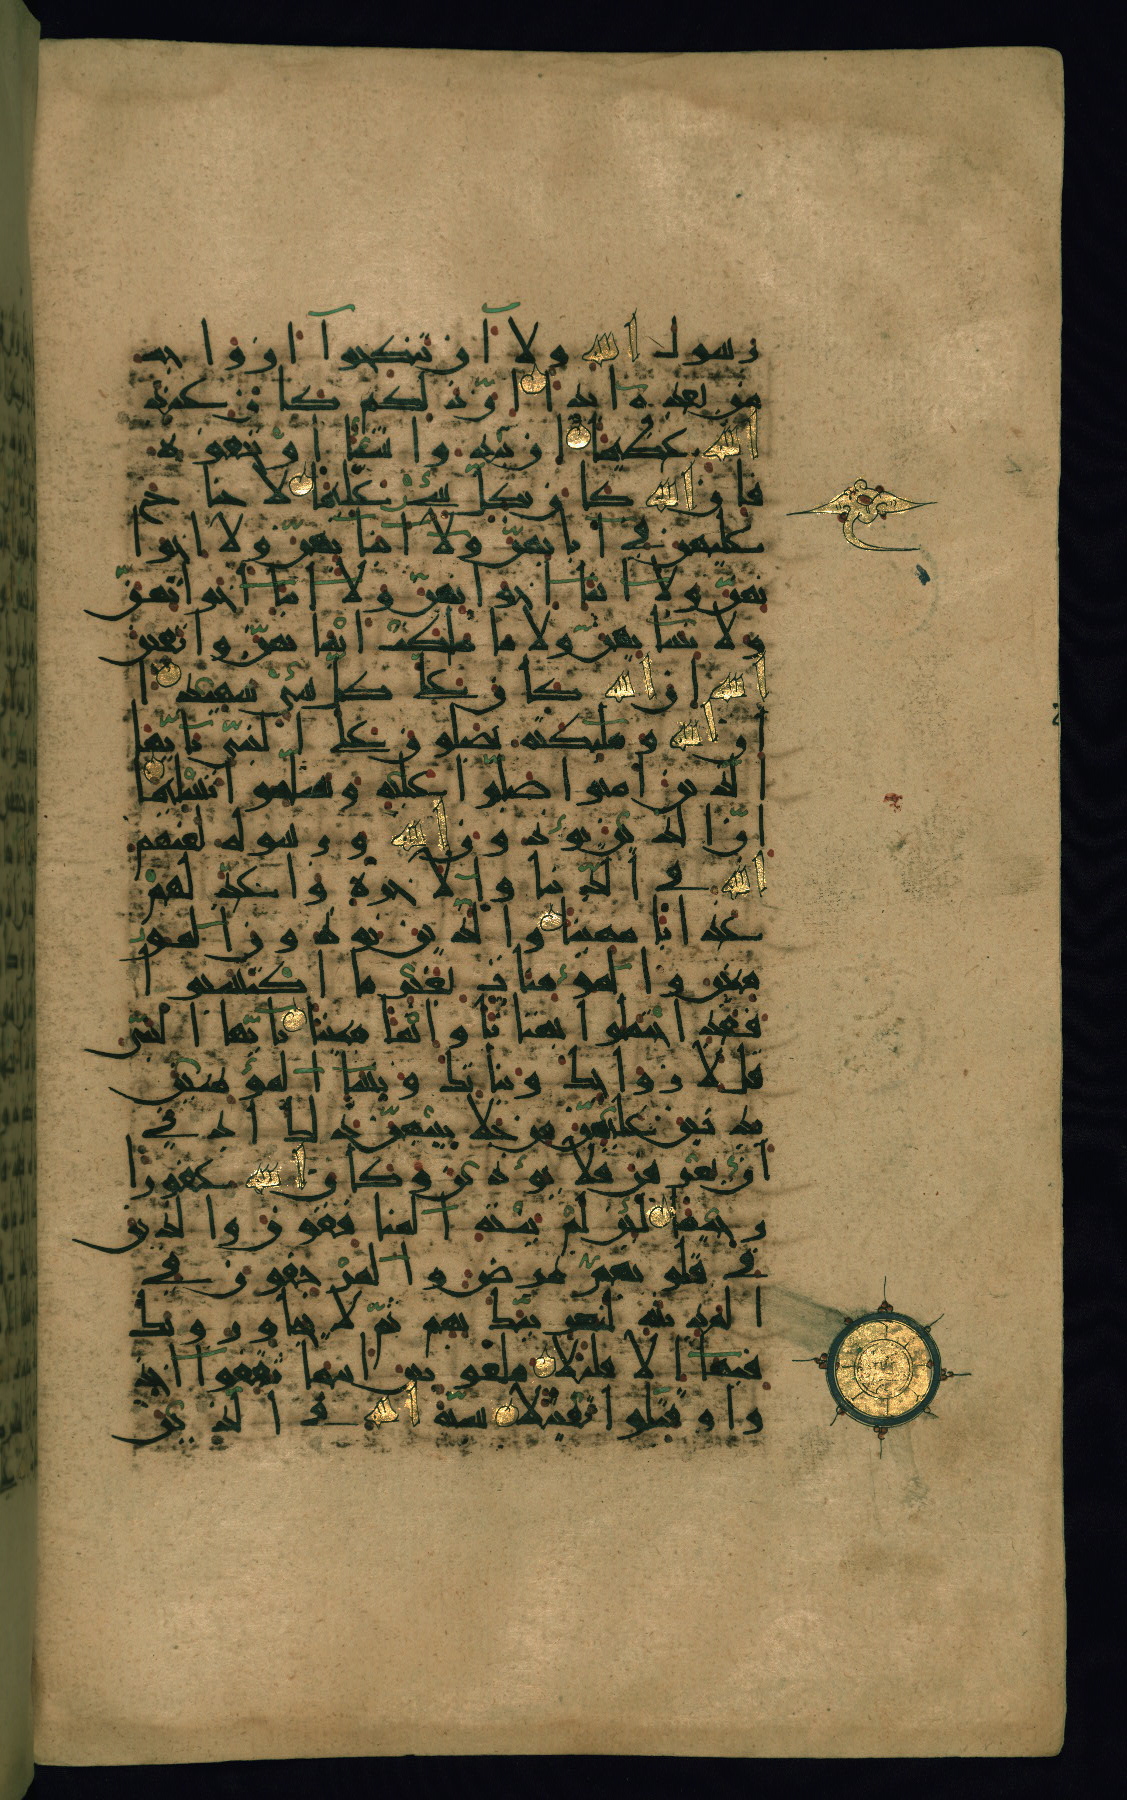 رسول الله ولا ان تنكحوا ازواجه
من بعده ابدا ان ذلكم كان عند
الله عظيما ان تبدوا شيئا او تخفوه
فان الله كان بكل شئ عليما لا جناح
عليهن في ابائهن ولا ابنائهن ولا اخوا
نهن ولا ابنا اخوانهن ولا ابنا اخواتهن
ولا نسائهن ولا ما ملكت ايمانهن واتقين
الله ان الله كان على كل شئ شهيدا
ان الله وملئكته يصلون على النبى يايها
الذين امنوا صلوا عليه وسلموا تسليما
ان الذين يؤذون الله ورسوله لعنهم
الله في الدنيا والاخرة واعد لهم
عذابا مهينا والذين يؤذون المؤ
منين والمؤمنات بغير ما اكتسبوا
فقد احتملوا بهتانا واثما مبينا يايها النبى
قل لازواجك وبناتك ونسا المؤمنين
يدنين عليهن من جلابيبهن ذلك ادنى
ان يعرفن فلا يؤذين وكان الله غفورا
رحيما لئن لم ينته المنافقون والذين
في قلوبهم مرض والمرجفون في
المدينة لنغرينك بهم ثم لا يجاورونك
فيها الا قليلا ملعونين اينما ثقفوا اخذ
وا وقتلوا تقتيلا سنة الله في الذين